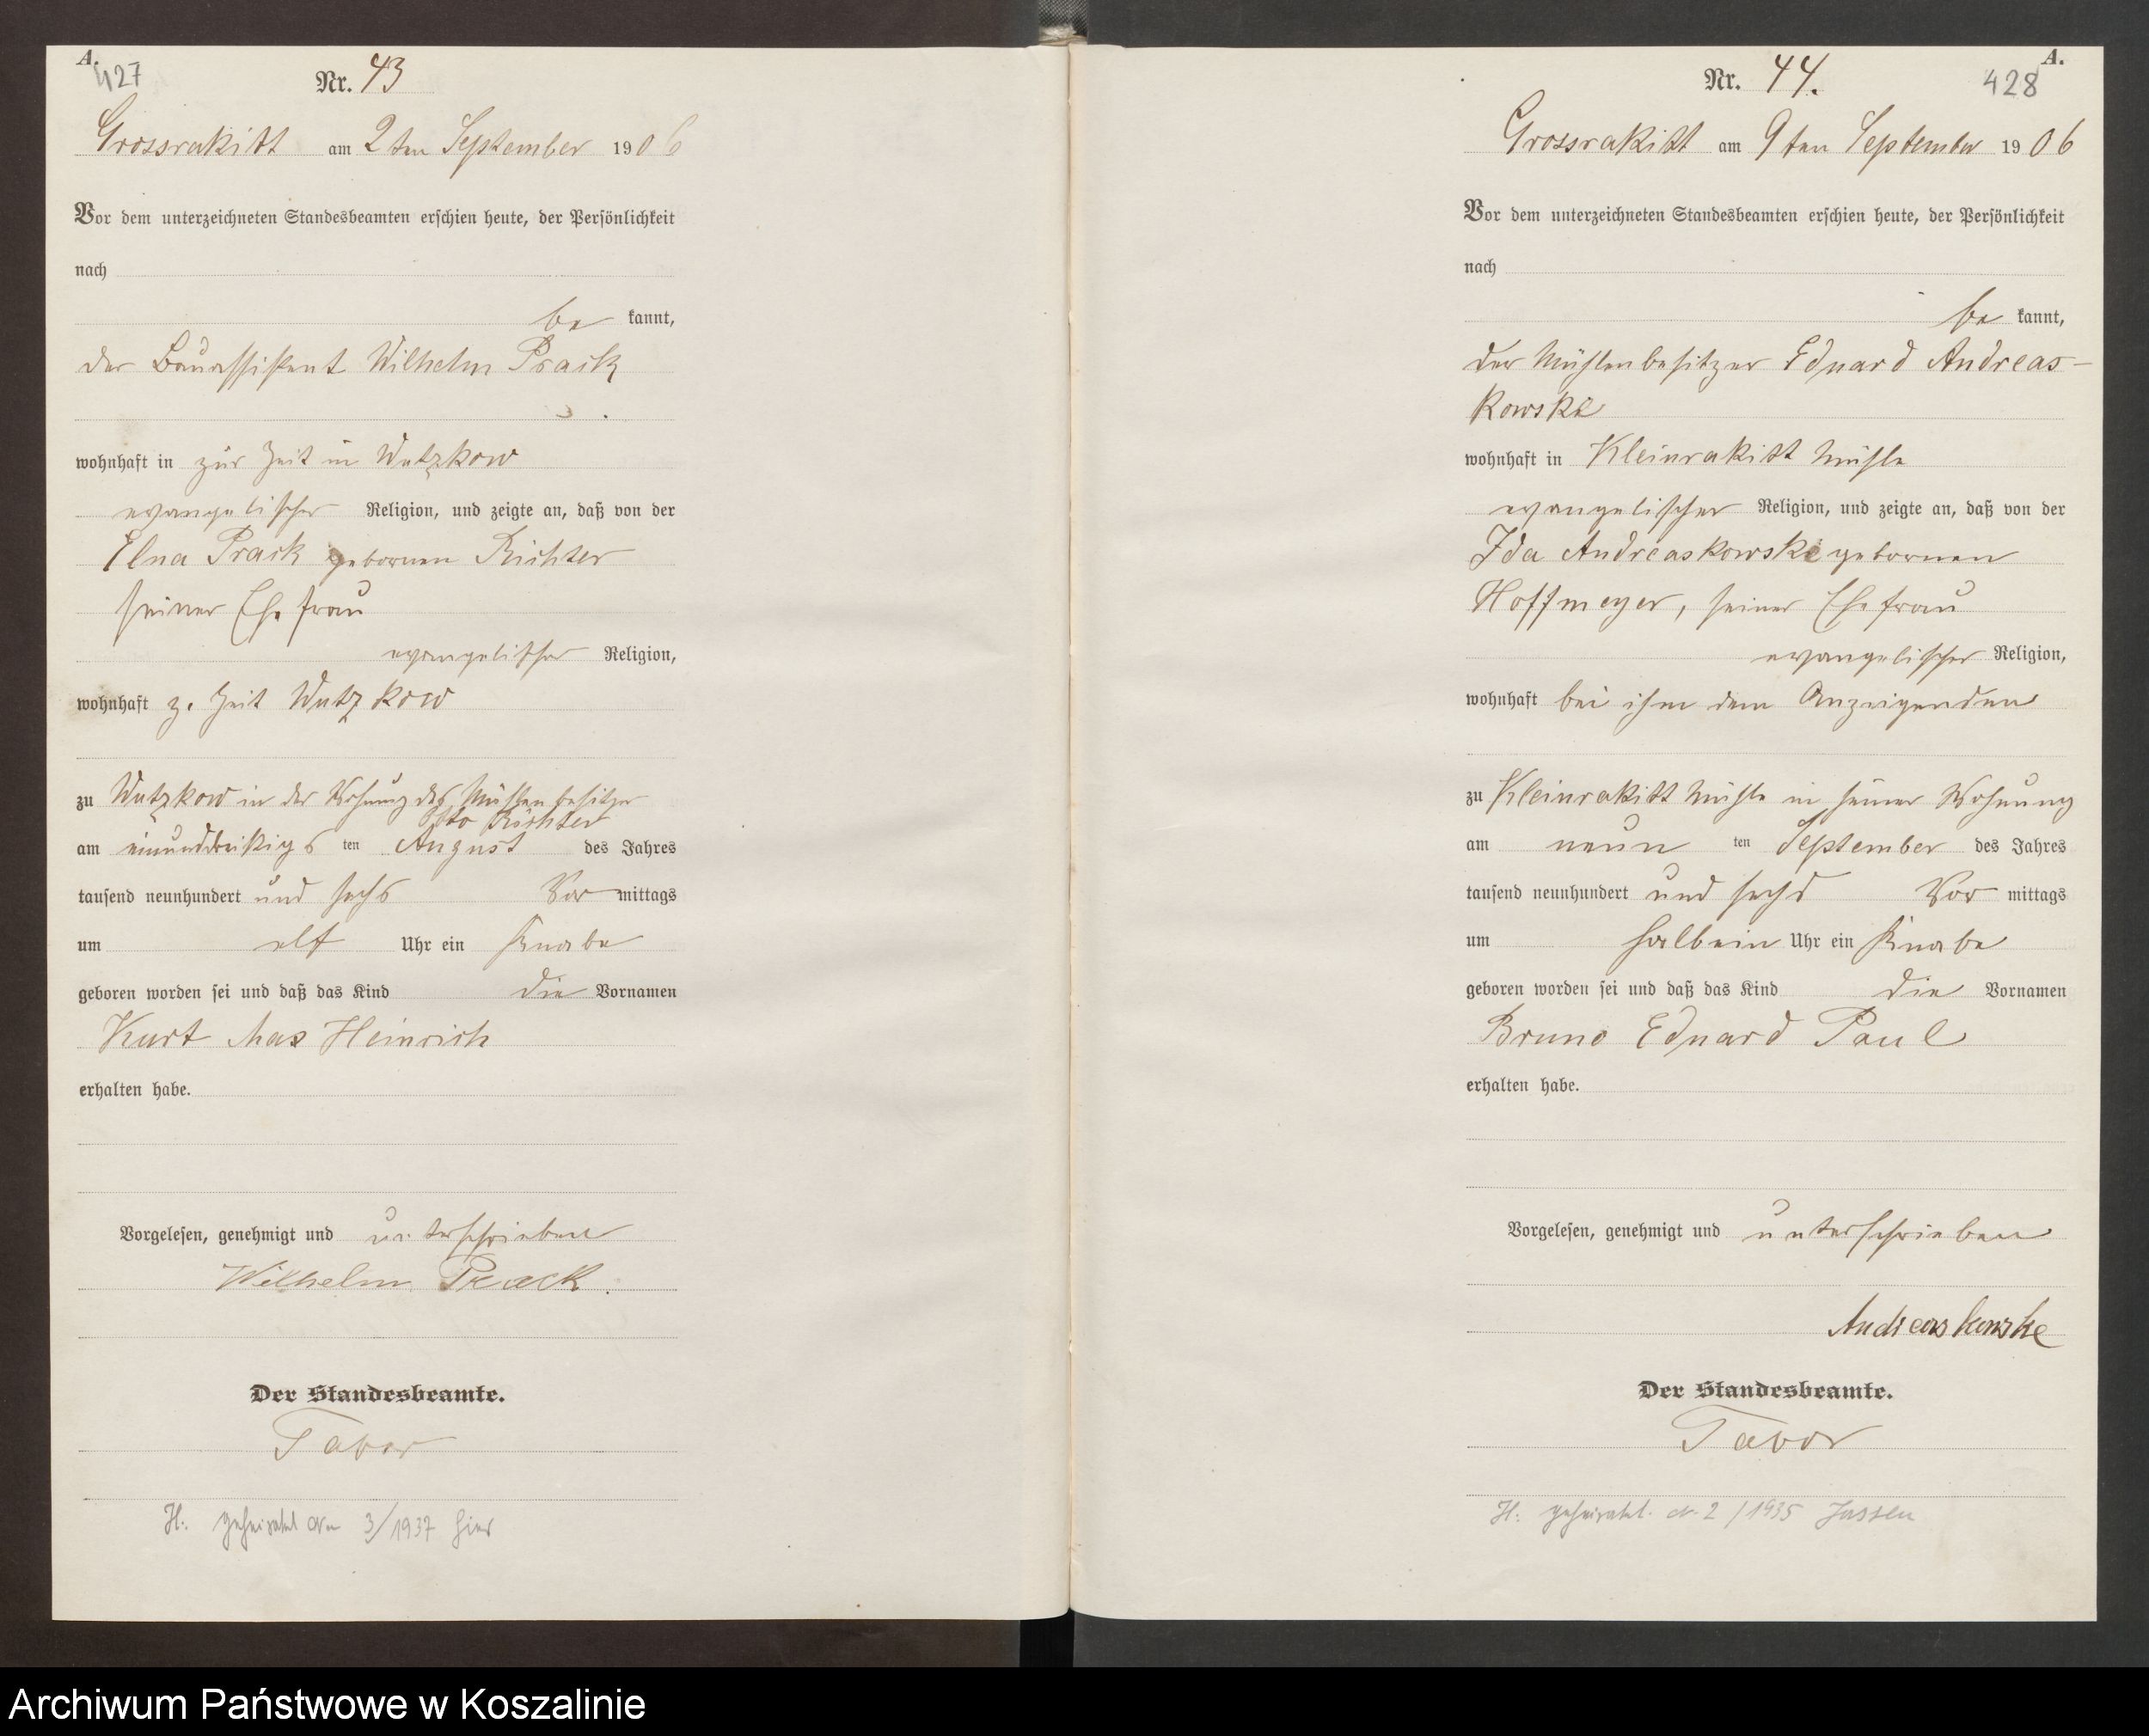 A.
427
Nr. 43
Grossrakitt am 2ten September 1906
Vor dem unterzeichneten Standesbeamten erschien heute, der Persönlichkeit
nach
be kannt,
der Bauassistent Wilhelm Prack
wohnhaft in zur Zeit in Wutzkow
evangelischer Religion, und zeigte an, daß von der
Elna Prack gebornen Richter
seiner Ehefrau
evangelischer Religion,
wohnhaft z. Zeit Wutzkow
zu Wutzkow in der Wohnung des Mühlenbesitzer
Otto Richter
am einunddreißigs ten August des Jahres
tausend neunhundert und sechs Vor mittags
um elf Uhr ein Knabe
geboren worden sei und daß das Kind die Vornamen
Kurt Max Heinrich
erhalten habe.
Vorgelesen, genehmigt und unterschrieben
Wilhelm Prack.
Der Standesbeamte.
Tabor
H. geheiratet am 3/1937 hier
A.
428
Nr. 44.
Grossrakitt am 9ten September 1906
Vor dem unterzeichneten Standesbeamten erschien heute, der Persönlichkeit
nach
be kannt,
der Mühlenbesitzer Eduard Andreas-
kowski
wohnhaft in Kleinrakitt Mühle
evangelischer Religion, und zeigte an, daß von der
Ida Andreaskowski gebornen
Hoffmeyer, seiner Ehefrau
evangelischer Religion,
wohnhaft bei ihm dem Anzeigenden
zu Kleinrakitt Mühle in seiner Wohnung
am neun ten September des Jahres
tausend neunhundert und sechs Vor mittags
um halb ein Uhr ein Knabe
geboren worden sei und daß das Kind die Vornamen
Bruno Eduard Paul
erhalten habe.
Vorgelesen, genehmigt und unterschrieben
Andreaskowske
Der Standesbeamte.
Tabor
H: geheiratet. 2/1935 Jassen
Archiwum Państwowe w Koszalinie